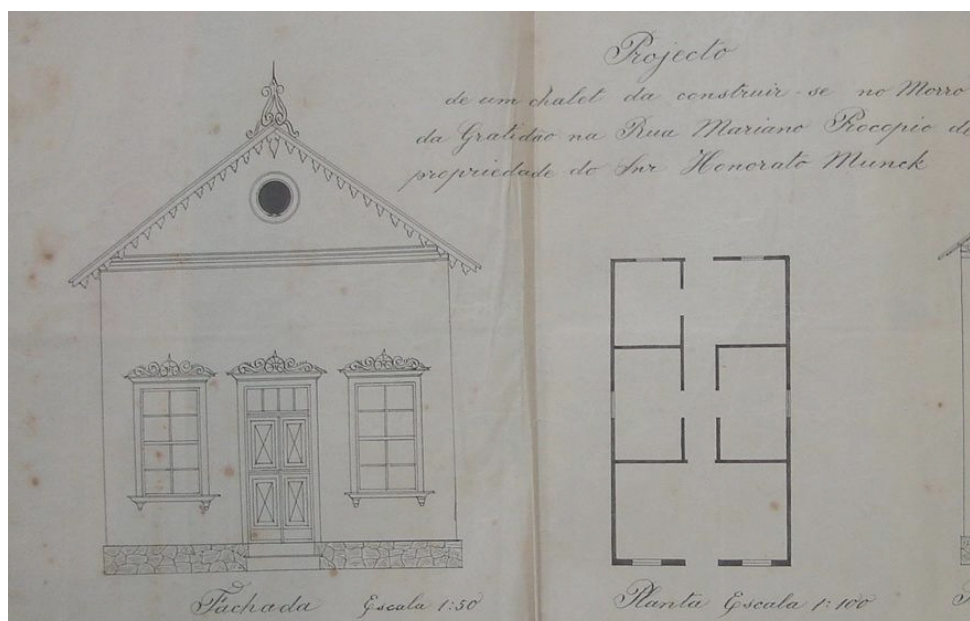 Projecto
de um chalet da construir-se no Morro
da Gratidão na Rua Mariano Procopio de
propriedade do Snr Honorato Munck
Fachada Escala 1:50
Planta Escala 1:100